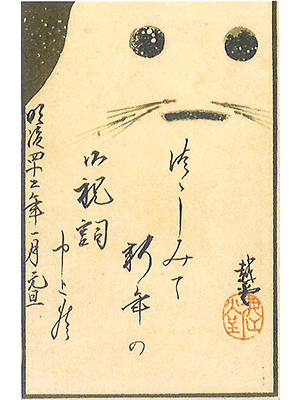 謹しみて
新年の
御祝詞
申上候
明治四十五年一月元旦
越堂